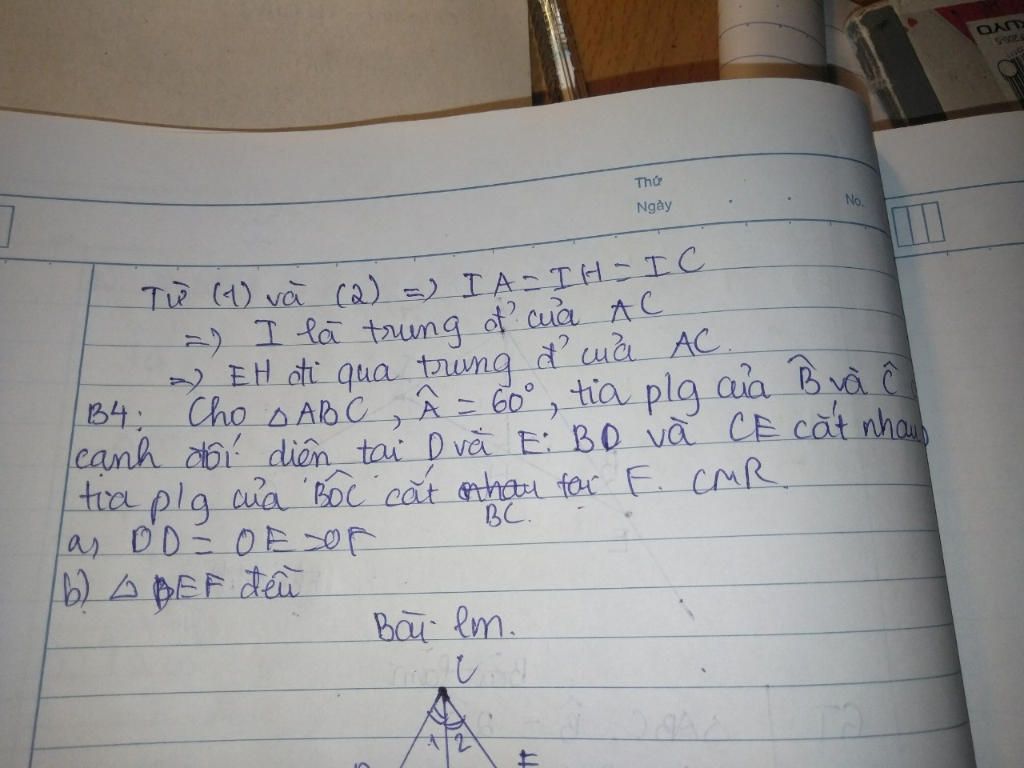 KUYO
Thứ
Ngày
No.
Từ (1) và (2) => IA = IH = IC
=> I là trung đ' của AC
=> EH đi qua trung đ' của AC.
B4: Cho △ABC, Â = 60°, tia plg của B̂ và Ĉ
cạnh đối diện tại D và E: BD và CE cắt nhau
tia plg của BÔC cắt tại F. CMR.
BC.
a, OD = OE = OF
b) △ DEF đều
Bài lm.
C
1 2
E